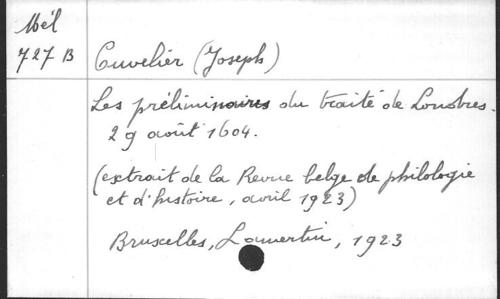 Mél
727 B
Cuvelier (Joseph)
Les préliminaires du traité de Londres.
29 août 1604.
(extrait de la Revue belge de philologie
et d'histoire, avril 1923)
Bruxelles, Lamertin, 1923